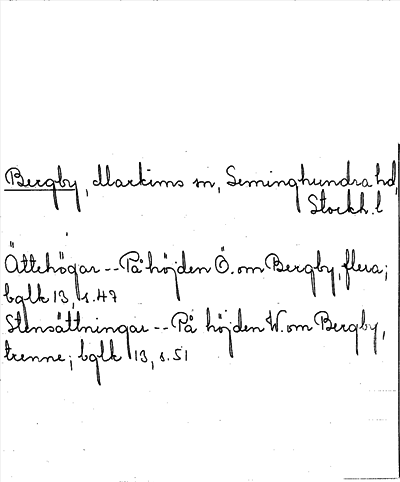 Bergby, Markims sn, Seminghundra hd,
Stockh. l
Ättehögar -- På höjden Ö. om Bergby, flera;
bglk 13, s. 49
Stensättningar -- På höjden W. om Bergby,
trenne; bglk 13, s. 51